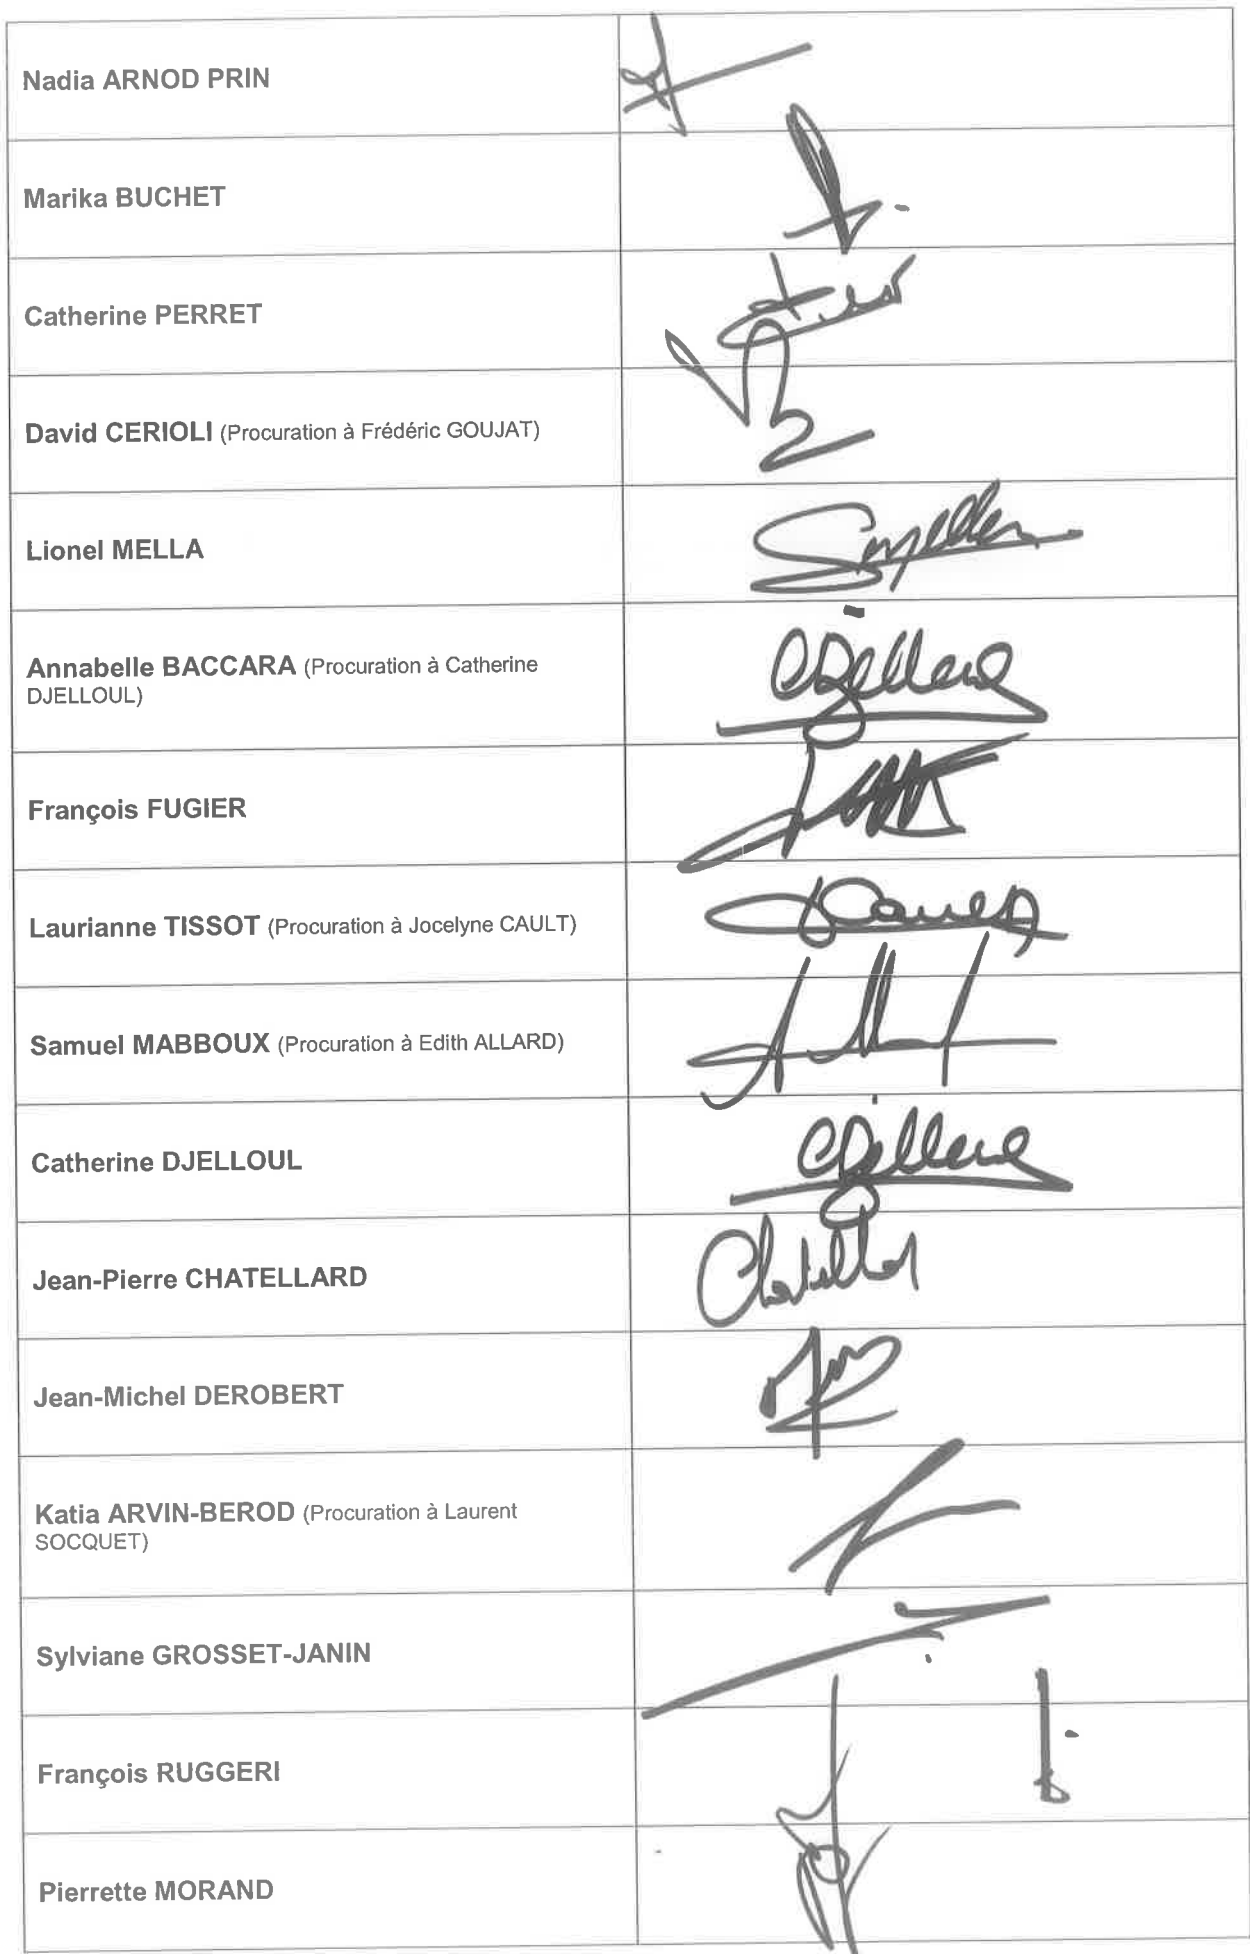 Nadia ARNOD PRIN
Marika BUCHET
Catherine PERRET
David CERIOLI (Procuration à Frédéric GOUJAT)
Lionel MELLA
Annabelle BACCARA (Procuration à Catherine
DJELLOUL)
François FUGIER
Laurianne TISSOT (Procuration à Jocelyne CAULT)
Samuel MABBOUX (Procuration à Edith ALLARD)
Catherine DJELLOUL
Jean-Pierre CHATELLARD
Jean-Michel DEROBERT
Katia ARVIN-BEROD (Procuration à Laurent
SOCQUET)
Sylviane GROSSET-JANIN
François RUGGERI
Pierrette MORAND